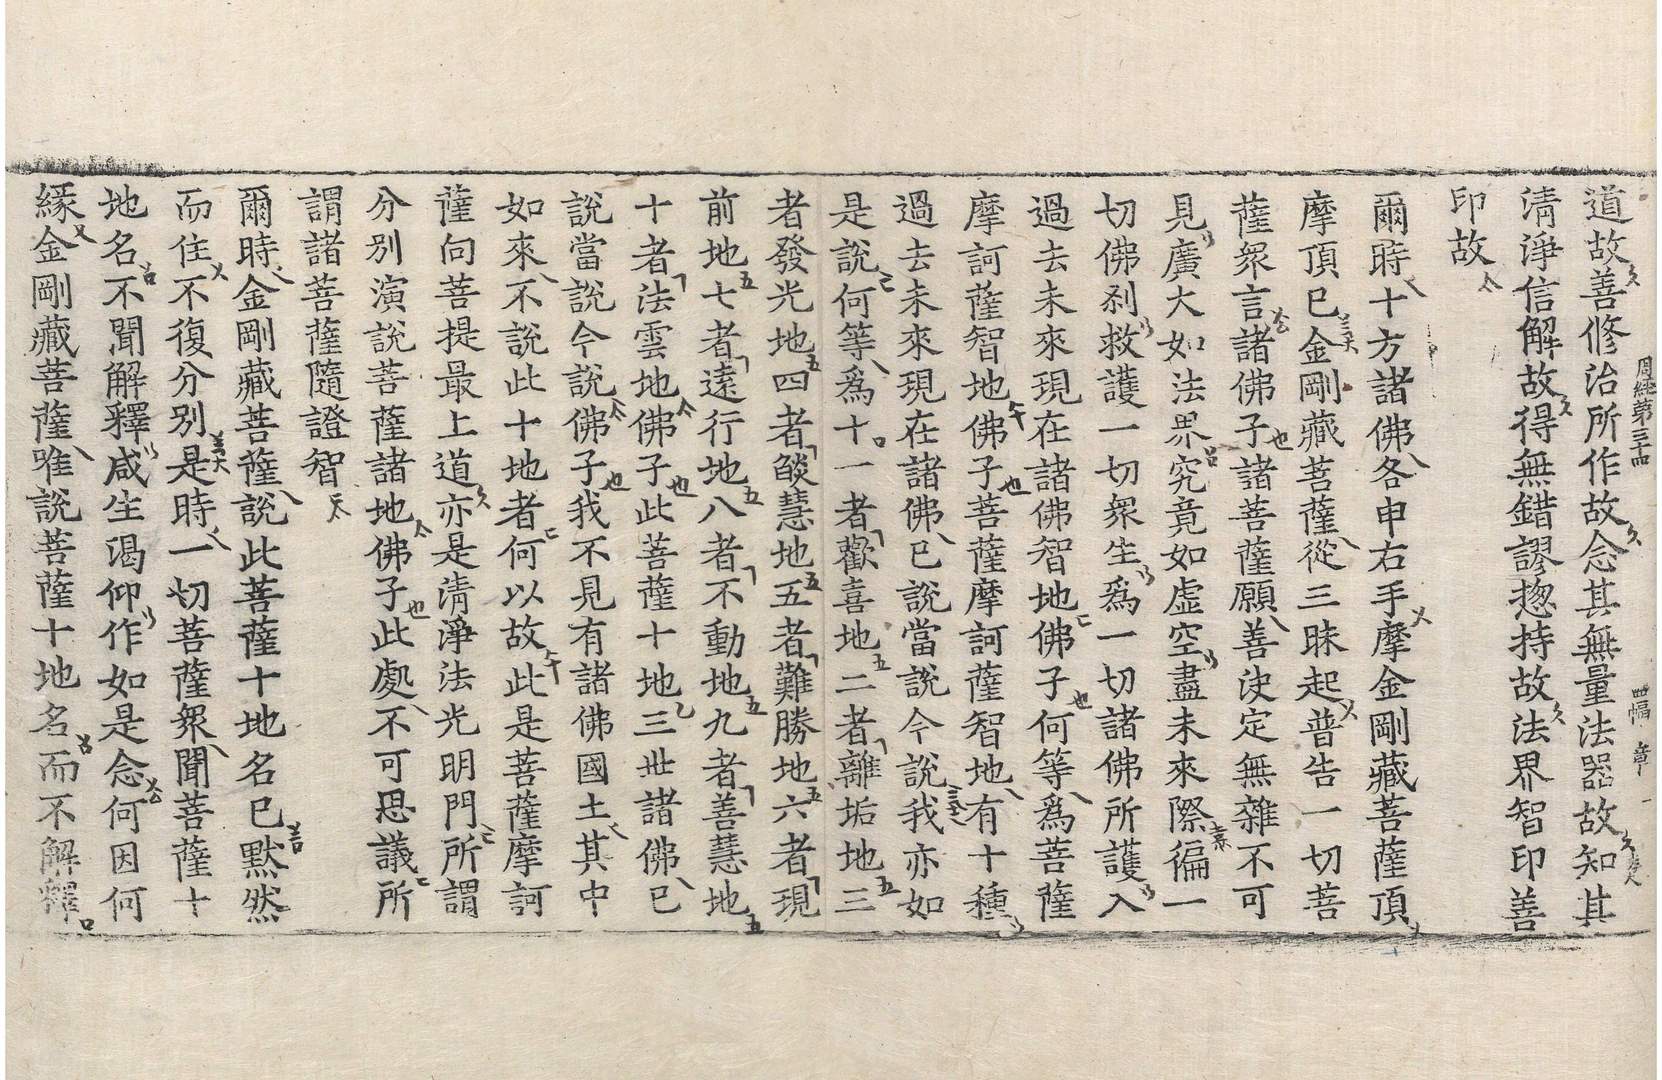 周經第三十四 四幅 章
道故善修治所作故念其無量法器故知其
清淨信解故得無錯謬揔持故法界智印善
印故
爾時十方諸佛各申右手摩金剛藏菩薩頂
摩頂已金剛藏菩薩從三昧起普告一切菩
薩衆言諸佛子諸菩薩願善決定無雜不可
見廣大如法界究竟如虛空盡未來際徧一
切佛刹救護一切衆生爲一切諸佛所護入
過去未來現在諸佛智地佛子何等爲菩薩
摩訶薩智地佛子菩薩摩訶薩智地有十種
過去未來現在諸佛已說當說今說我亦如
是說何等爲十一者歡喜地二者離垢地三
者發光地四者焰慧地五者難勝地六者現
前地七者遠行地八者不動地九者善慧地
十者法雲地佛子此菩薩十地三世諸佛已
說當說今說佛子我不見有諸佛國土其中
如來不說此十地者何以故此是菩薩摩訶
薩向菩提最上道亦是清淨法光明門所謂
分別演說菩薩諸地佛子此處不可思議所
謂諸菩薩隨證智
爾時金剛藏菩薩說此菩薩十地名已默然
而住不復分別是時一切菩薩衆聞菩薩十
地名不聞解釋咸生渴仰作如是念何因何
緣金剛藏菩薩唯說菩薩十地名而不解釋